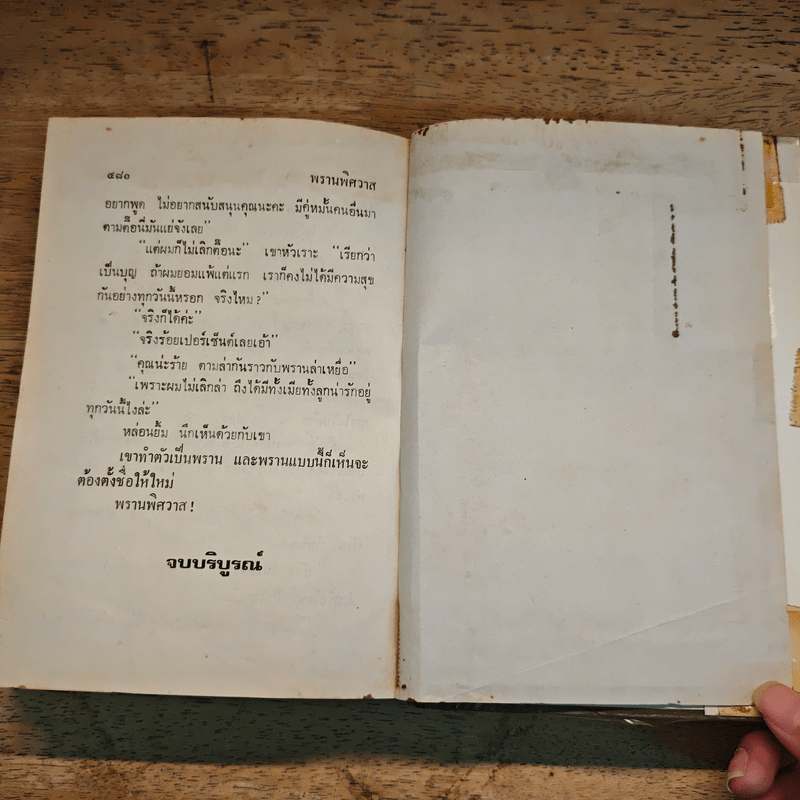 ๔๘๐ พรานพิศวาส
อยากพูด ไม่อยากสนับสนุนคุณนะคะ มีคู่หมั้นคนอื่นมา
ตามตื๊อนี่มันแย่จังเลย”
“แต่ผมก็ไม่เลิกตื๊อนะ” เขาหัวเราะ “เรียกว่า
เป็นบุญ ถ้าผมยอมแพ้แต่แรก เราก็คงไม่ได้มีความสุข
กันอย่างทุกวันนี้หรอก จริงไหม?”
“จริงก็ได้ค่ะ”
“จริงร้อยเปอร์เซ็นต์เลยเอ้า”
“คุณน่ะร้าย ตามล่ากันราวกับพรานล่าเหยื่อ”
“เพราะผมไม่เลิกล่า ถึงได้มีทั้งเมียทั้งลูกน่ารักอยู่
ทุกวันนี้ไงล่ะ”
หล่อนยิ้ม นึกเห็นด้วยกับเขา
เขาทำตัวเป็นพราน และพรานแบบนี้ก็เห็นจะ
ต้องตั้งชื่อให้ใหม่
พรานพิศวาส!
จบบริบูรณ์